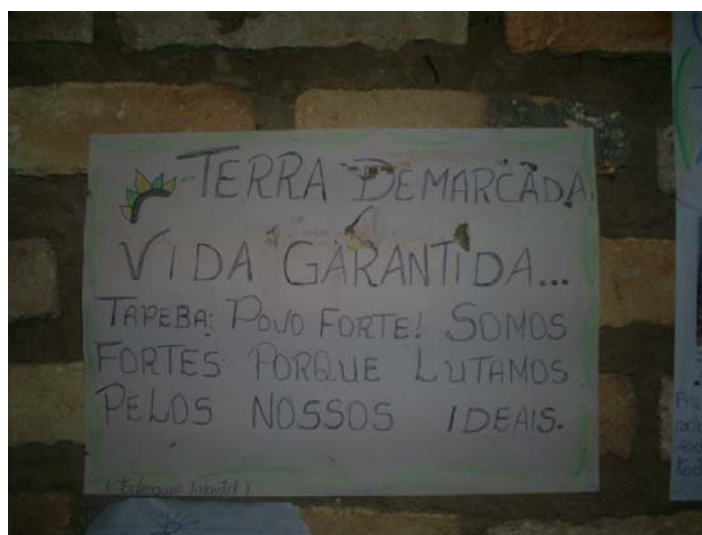 TERRA DEMARCADA,
VIDA GARANTIDA...
TAPEBA: POVO FORTE! SOMOS
FORTES PORQUE LUTAMOS
PELOS NOSSOS IDEAIS.
(Educação Infantil)